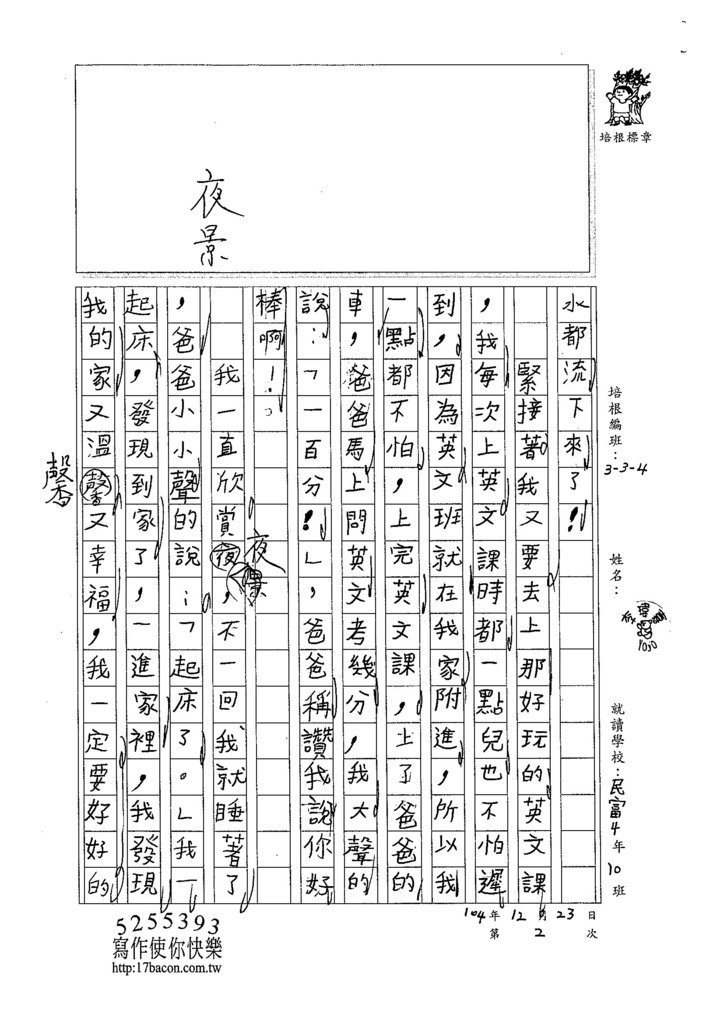 培根標章
夜景
培根編班：3-3-4
姓名：
就讀學校：民富4年10班
104年12月23日
第2次
水都流下來了！
緊接著我又要去上那好玩的英文課
，我每次上英文課時都一點兒也不怕遲
到，因為英文班就在我家附進，所以我
一點都不怕，上完英文課，上了爸爸的
車，爸爸馬上問英文考幾分，我大聲的
說：「一百分！」，爸爸稱讚我說你好
棒啊！。
我一直欣賞夜，不一回我就睡著了
夜景
，爸爸小小聲的說：「起床了。」我一
起床，發現到家了，一進家裡，我發現
我的家又溫馨又幸福，我一定要好好的
馨
5255393
寫作使你快樂
http:17bacon.com.tw